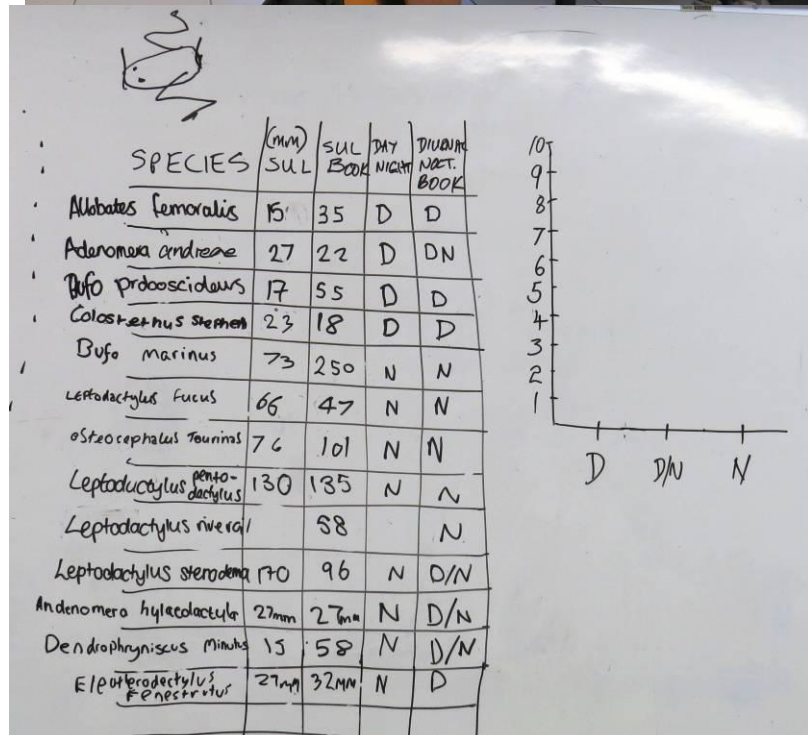 (mm) SUL DAY DIUDNAL
SPECIES SUL BOOK NIGHT NOCT.
BOOK
Allobates femoralis 15 35 D D
Adenomera andreae 27 22 D DN
Bufo prdooscideus 17 55 D D
Colostethus Stephen 23 18 D D
Bufo marinus 73 250 N N
Leptodactylus Fucus 66 47 N N
Osteocephalus Tourinas 76 101 N N
Leptoductylus pento- 130 135 N N
dactylus
Leptodactylus riveral 58 N
Leptodactylus sterodema 170 96 N D/N
Andenomera hylaedactyla 27mm 27mm N D/N
Dendrophryniscus Minutus 15 58 N D/N
Eleutherodectylus 27mm 32MN N D
Fenestratus
10
9
8
7
6
5
4
3
2
1
D D/N N